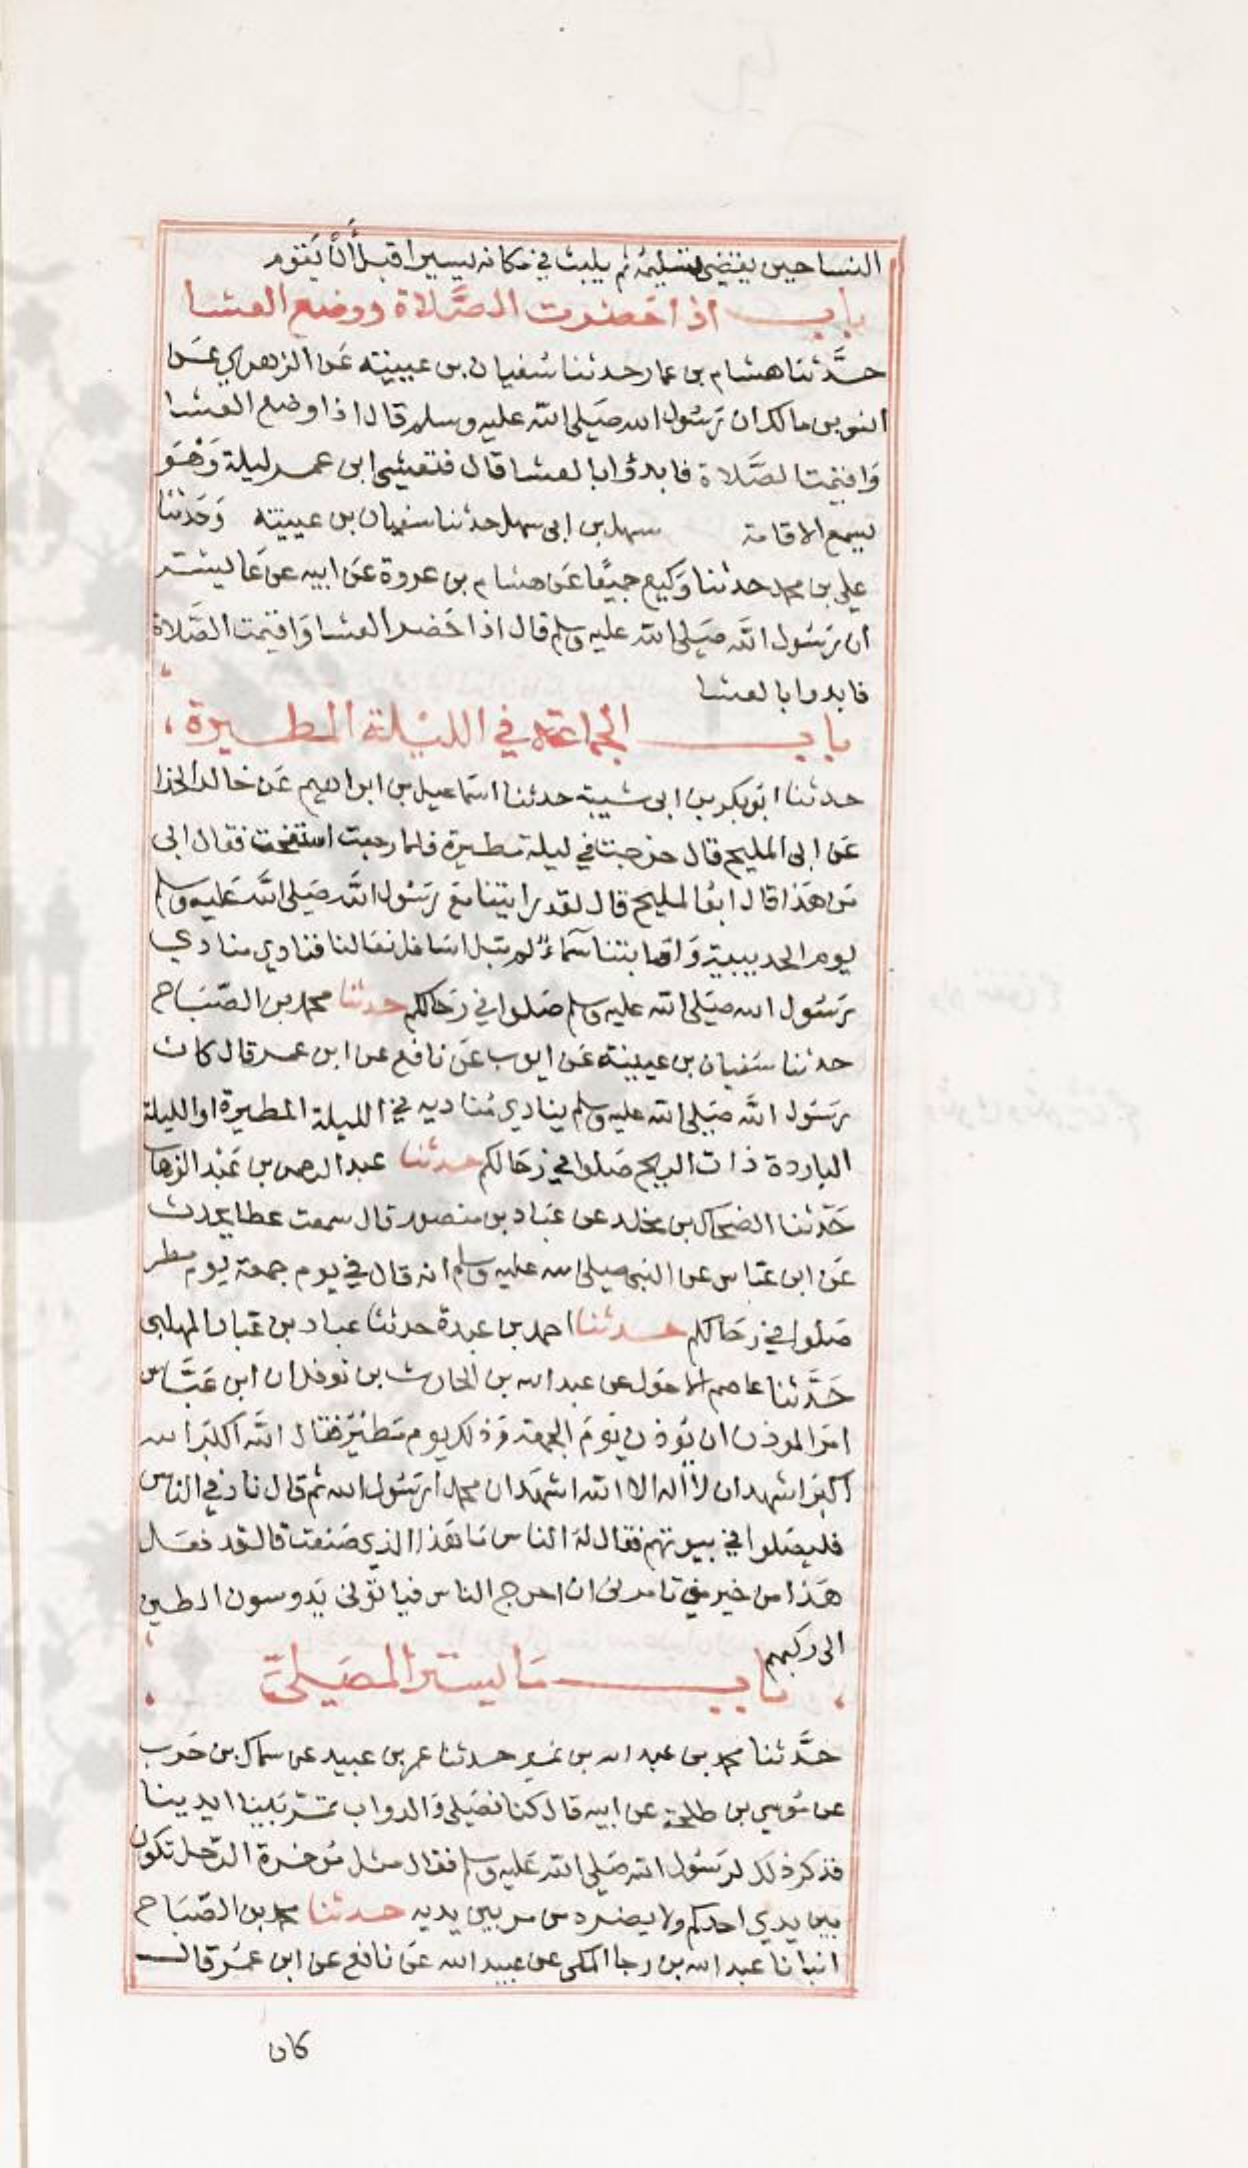 النسا حين يقضي تسليمه ثم يلبث في مكانه يسيرا قبل أن يقوم
باب اذا حضرت الصلاة ووضع العشا
حدثنا هشام بن عمار حدثنا سفيان بن عيينه عن الزهري عن
انس بن مالك ان رسول الله صلى الله عليه وسلم قال اذا وضع العشا
واقيمت الصلاة فابدؤا بالعشا قال فتعشى ابن عمر ليلة وهو
يسمع الاقامة سهل بن ابي سهل حدثنا سفيان بن عيينه وحدثنا
علي بن محمد حدثنا وكيع جميعا عن هشام بن عروة عن ابيه عن عايشة
ان رسول الله صلى الله عليه وسلم قال اذا حضر العشا واقيمت الصلاة
فابدوا بالعشا
باب الجماعة في الليلة المطيرة
حدثنا ابو بكر بن ابي شيبة حدثنا اسماعيل بن ابراهيم عن خالد الحذا
عن ابي المليح قال خرجت في ليلة مطيرة فلما رجعت استفتحت فقال ابي
من هذا قال ابو المليح قال لقد رايتنا مع رسول الله صلى الله عليه وسلم
يوم الحديبية واصابتنا سماء لم تبل اسافل نعالنا فنادي منادي
رسول الله صلى الله عليه وسلم صلوا في رحالكم حدثنا محمد بن الصباح
حدثنا سفيان بن عيينة عن ايوب عن نافع عن ابن عمر قال كان
رسول الله صلى الله عليه وسلم ينادي مناديه في الليلة المطيرة او الليلة
الباردة ذات الريح صلوا في رحالكم حدثنا عبد الرحمن بن عبد الوهاب
حدثنا الضحاك بن مخلد عن عباد بن منصور قال سمعت عطا يحدث
عن ابن عباس عن النبي صلى الله عليه وسلم انه قال في يوم جمعة يوم مطر
صلوا في رحالكم حدثنا احمد بن عبدة حدثنا عباد بن عباد المهلبي
حدثنا عاصم الاحول عن عبد الله بن الحارث بن نوفل ان ابن عباس
امر الموذن ان يوذن يوم الجمعة وذلك يوم مطير فقال الله اكبر الله
اكبر اشهد ان لا اله الا الله اشهد ان محمدا رسول الله ثم قال ناد في الناس
فليصلوا في بيوتهم فقال له الناس ما هذا الذي صنعت قال قد فعل
هذا من خير مني تامرني ان اخرج الناس فياتوني يدوسون الطين
الى ركبهم
باب ما يستر المصلي
حدثنا محمد بن عبد الله بن نمير حدثنا عمر بن عبيد عن سماك بن حرب
عن موسي بن طلحة عن ابيه قال كنا نصلي والدواب تمر بين ايدينا
فذكر ذلك لرسول الله صلى الله عليه وسلم فقال مثل موخرة الرحل تكون
بين يدي احدكم ولا يضره من مر بين يديه حدثنا محمد بن الصباح
انبانا عبد الله بن رجا المكي عن عبيد الله عن نافع عن ابن عمر قال
كان